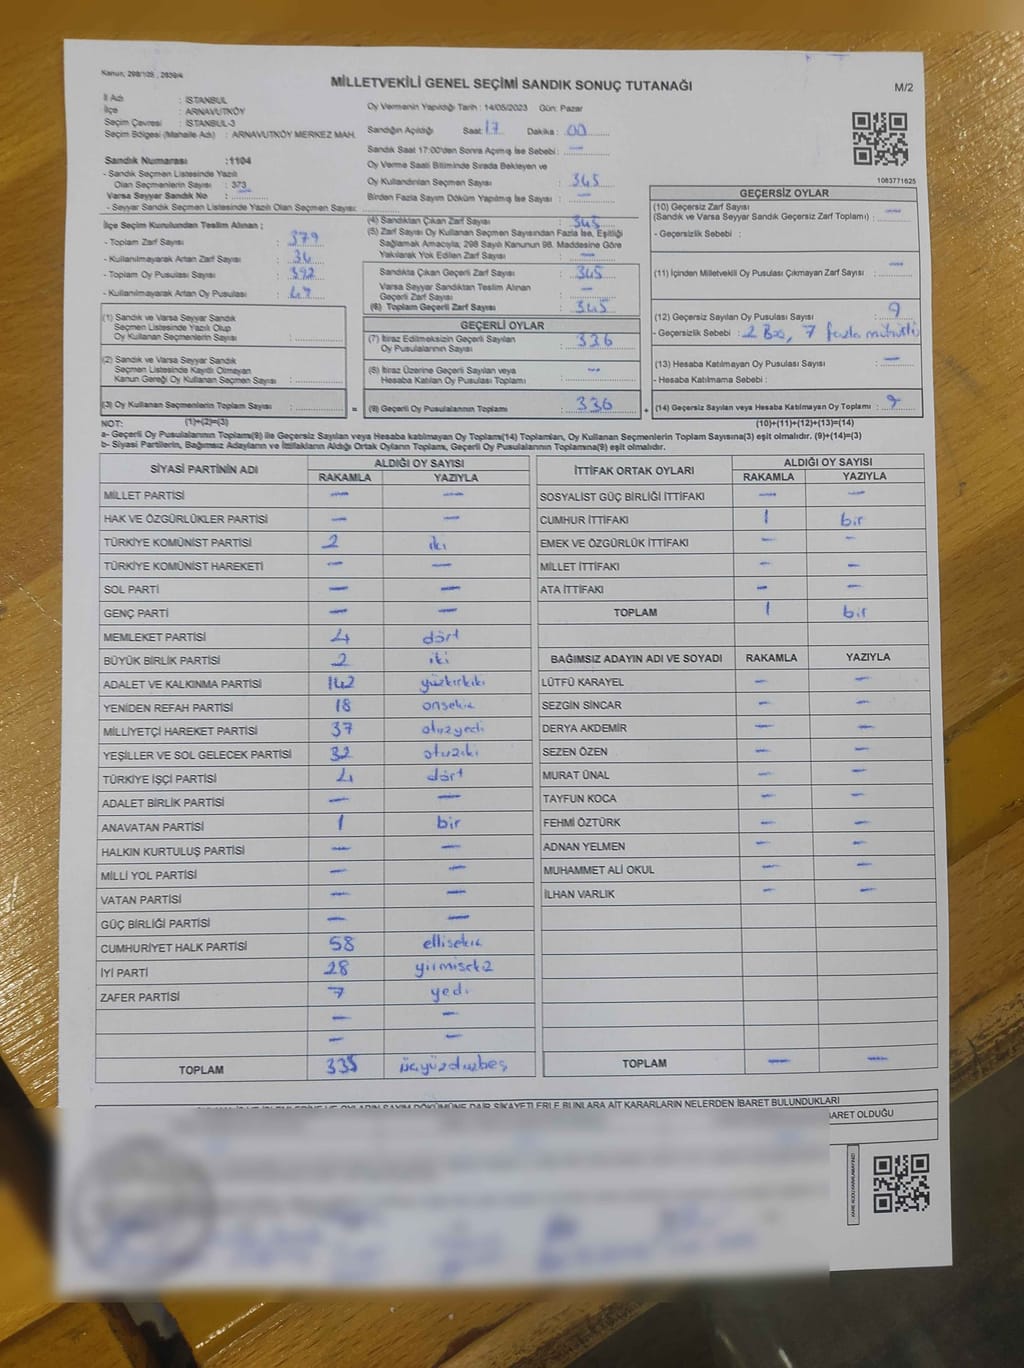 Kanun, 298/105, 2839/4
MİLLETVEKİLİ GENEL SEÇİMİ SANDIK SONUÇ TUTANAĞI
M/2
İl Adı : İSTANBUL
İlçe : ARNAVUTKÖY
Seçim Çevresi : İSTANBUL-3
Seçim Bölgesi (Mahalle Adı) : ARNAVUTKÖY MERKEZ MAH.
Sandık Numarası :1104
- Sandık Seçmen Listesinde Yazılı
Olan Seçmenlerin Sayısı : 373
Varsa Seyyar Sandık No :
- Seyyar Sandık Seçmen Listesinde Yazılı Olan Seçmen Sayısı:
Oy Vermenin Yapıldığı Tarih : 14/05/2023 Gün: Pazar
Sandığın Açıldığı Saat : 17 Dakika : 00
Sandık Saat 17:00'den Sonra Açılmış İse Sebebi : —
Oy Verme Saati Bitiminde Sırada Bekleyen ve
Oy Kullandırılan Seçmen Sayısı : 345
Birden Fazla Sayım Döküm Yapılmış İse Sayısı : —
1083771625
İlçe Seçim Kurulundan Teslim Alınan ;
- Toplam Zarf Sayısı : 379
- Kullanılmayarak Artan Zarf Sayısı : 34
- Toplam Oy Pusulası Sayısı : 392
- Kullanılmayarak Artan Oy Pusulası : 47
(1) Sandık ve Varsa Seyyar Sandık
Seçmen Listesinde Yazılı Olup
Oy Kullanan Seçmenlerin Sayısı :
(2) Sandık ve Varsa Seyyar Sandık
Seçmen Listesinde Kayıtlı Olmayan
Kanun Gereği Oy Kullanan Seçmen Sayısı :
(3) Oy Kullanan Seçmenlerin Toplam Sayısı :
(4) Sandıktan Çıkan Zarf Sayısı : 345
(5) Zarf Sayısı Oy Kullanan Seçmen Sayısından Fazla İse, Eşitliği
Sağlamak Amacıyla; 298 Sayılı Kanunun 98. Maddesine Göre
Yakılarak Yok Edilen Zarf Sayısı : —
Sandıkta Çıkan Geçerli Zarf Sayısı : 345
Varsa Seyyar Sandıktan Teslim Alınan
Geçerli Zarf Sayısı : —
(6) Toplam Geçerli Zarf Sayısı : 345
GEÇERLİ OYLAR
(7) İtiraz Edilmeksizin Geçerli Sayılan
Oy Pusulalarının Sayısı : 336
(8) İtiraz Üzerine Geçerli Sayılan veya
Hesaba Katılan Oy Pusulası Toplamı : —
= (9) Geçerli Oy Pusulalarının Toplamı : 336 +
GEÇERSİZ OYLAR
(10) Geçersiz Zarf Sayısı
(Sandık ve Varsa Seyyar Sandık Geçersiz Zarf Toplamı) : —
- Geçersizlik Sebebi :
(11) İçinden Milletvekili Oy Pusulası Çıkmayan Zarf Sayısı : —
(12) Geçersiz Sayılan Oy Pusulası Sayısı : 9
- Geçersizlik Sebebi : 2 Boş, 7 fazla mühürlü
(13) Hesaba Katılmayan Oy Pusulası Sayısı : —
- Hesaba Katılmama Sebebi :
(14) Geçersiz Sayılan veya Hesaba Katılmayan Oy Toplamı : 9
NOT: (1)+(2)=(3) (10)+(11)+(12)+(13)=(14)
a- Geçerli Oy Pusulalarının Toplamı(9) ile Geçersiz Sayılan veya Hesaba katılmayan Oy Toplamı(14) Toplamları, Oy Kullanan Seçmenlerin Toplam Sayısına(3) eşit olmalıdır. (9)+(14)=(3)
b- Siyasi Partilerin, Bağımsız Adayların ve İttifakların Aldığı Ortak Oyların Toplamı, Geçerli Oy Pusulalarının Toplamına(9) eşit olmalıdır.
SİYASİ PARTİNİN ADI ALDIĞI OY SAYISI
RAKAMLA YAZIYLA
MİLLET PARTİSİ — —
HAK VE ÖZGÜRLÜKLER PARTİSİ — —
TÜRKİYE KOMÜNİST PARTİSİ 2 iki
TÜRKİYE KOMÜNİST HAREKETİ — —
SOL PARTİ — —
GENÇ PARTİ — —
MEMLEKET PARTİSİ 4 dört
BÜYÜK BİRLİK PARTİSİ 2 iki
ADALET VE KALKINMA PARTİSİ 142 yüzkırkiki
YENİDEN REFAH PARTİSİ 18 onsekiz
MİLLİYETÇİ HAREKET PARTİSİ 37 otuzyedi
YEŞİLLER VE SOL GELECEK PARTİSİ 32 otuziki
TÜRKİYE İŞÇİ PARTİSİ 4 dört
ADALET BİRLİK PARTİSİ — —
ANAVATAN PARTİSİ 1 bir
HALKIN KURTULUŞ PARTİSİ — —
MİLLİ YOL PARTİSİ — —
VATAN PARTİSİ — —
GÜÇ BİRLİĞİ PARTİSİ — —
CUMHURİYET HALK PARTİSİ 58 ellisekiz
İYİ PARTİ 28 yirmisekiz
ZAFER PARTİSİ 7 yedi
— —
— —
TOPLAM 335 üçyüzotuzbeş
İTTİFAK ORTAK OYLARI ALDIĞI OY SAYISI
RAKAMLA YAZIYLA
SOSYALİST GÜÇ BİRLİĞİ İTTİFAKI — —
CUMHUR İTTİFAKI 1 bir
EMEK VE ÖZGÜRLÜK İTTİFAKI — —
MİLLET İTTİFAKI — —
ATA İTTİFAKI — —
TOPLAM 1 bir
BAĞIMSIZ ADAYIN ADI VE SOYADI RAKAMLA YAZIYLA
LÜTFÜ KARAYEL — —
SEZGİN SİNCAR — —
DERYA AKDEMİR — —
SEZEN ÖZEN — —
MURAT ÜNAL — —
TAYFUN KOCA — —
FEHMİ ÖZTÜRK — —
ADNAN YELMEN — —
MUHAMMET ALİ OKUL — —
İLHAN VARLIK — —
TOPLAM — —
SAYIM DÖKÜMÜNE DAİR ŞİKAYETLERLE BUNLARA AİT KARARLARIN NELERDEN İBARET BULUNDUKLARI
İBARET OLDUĞU